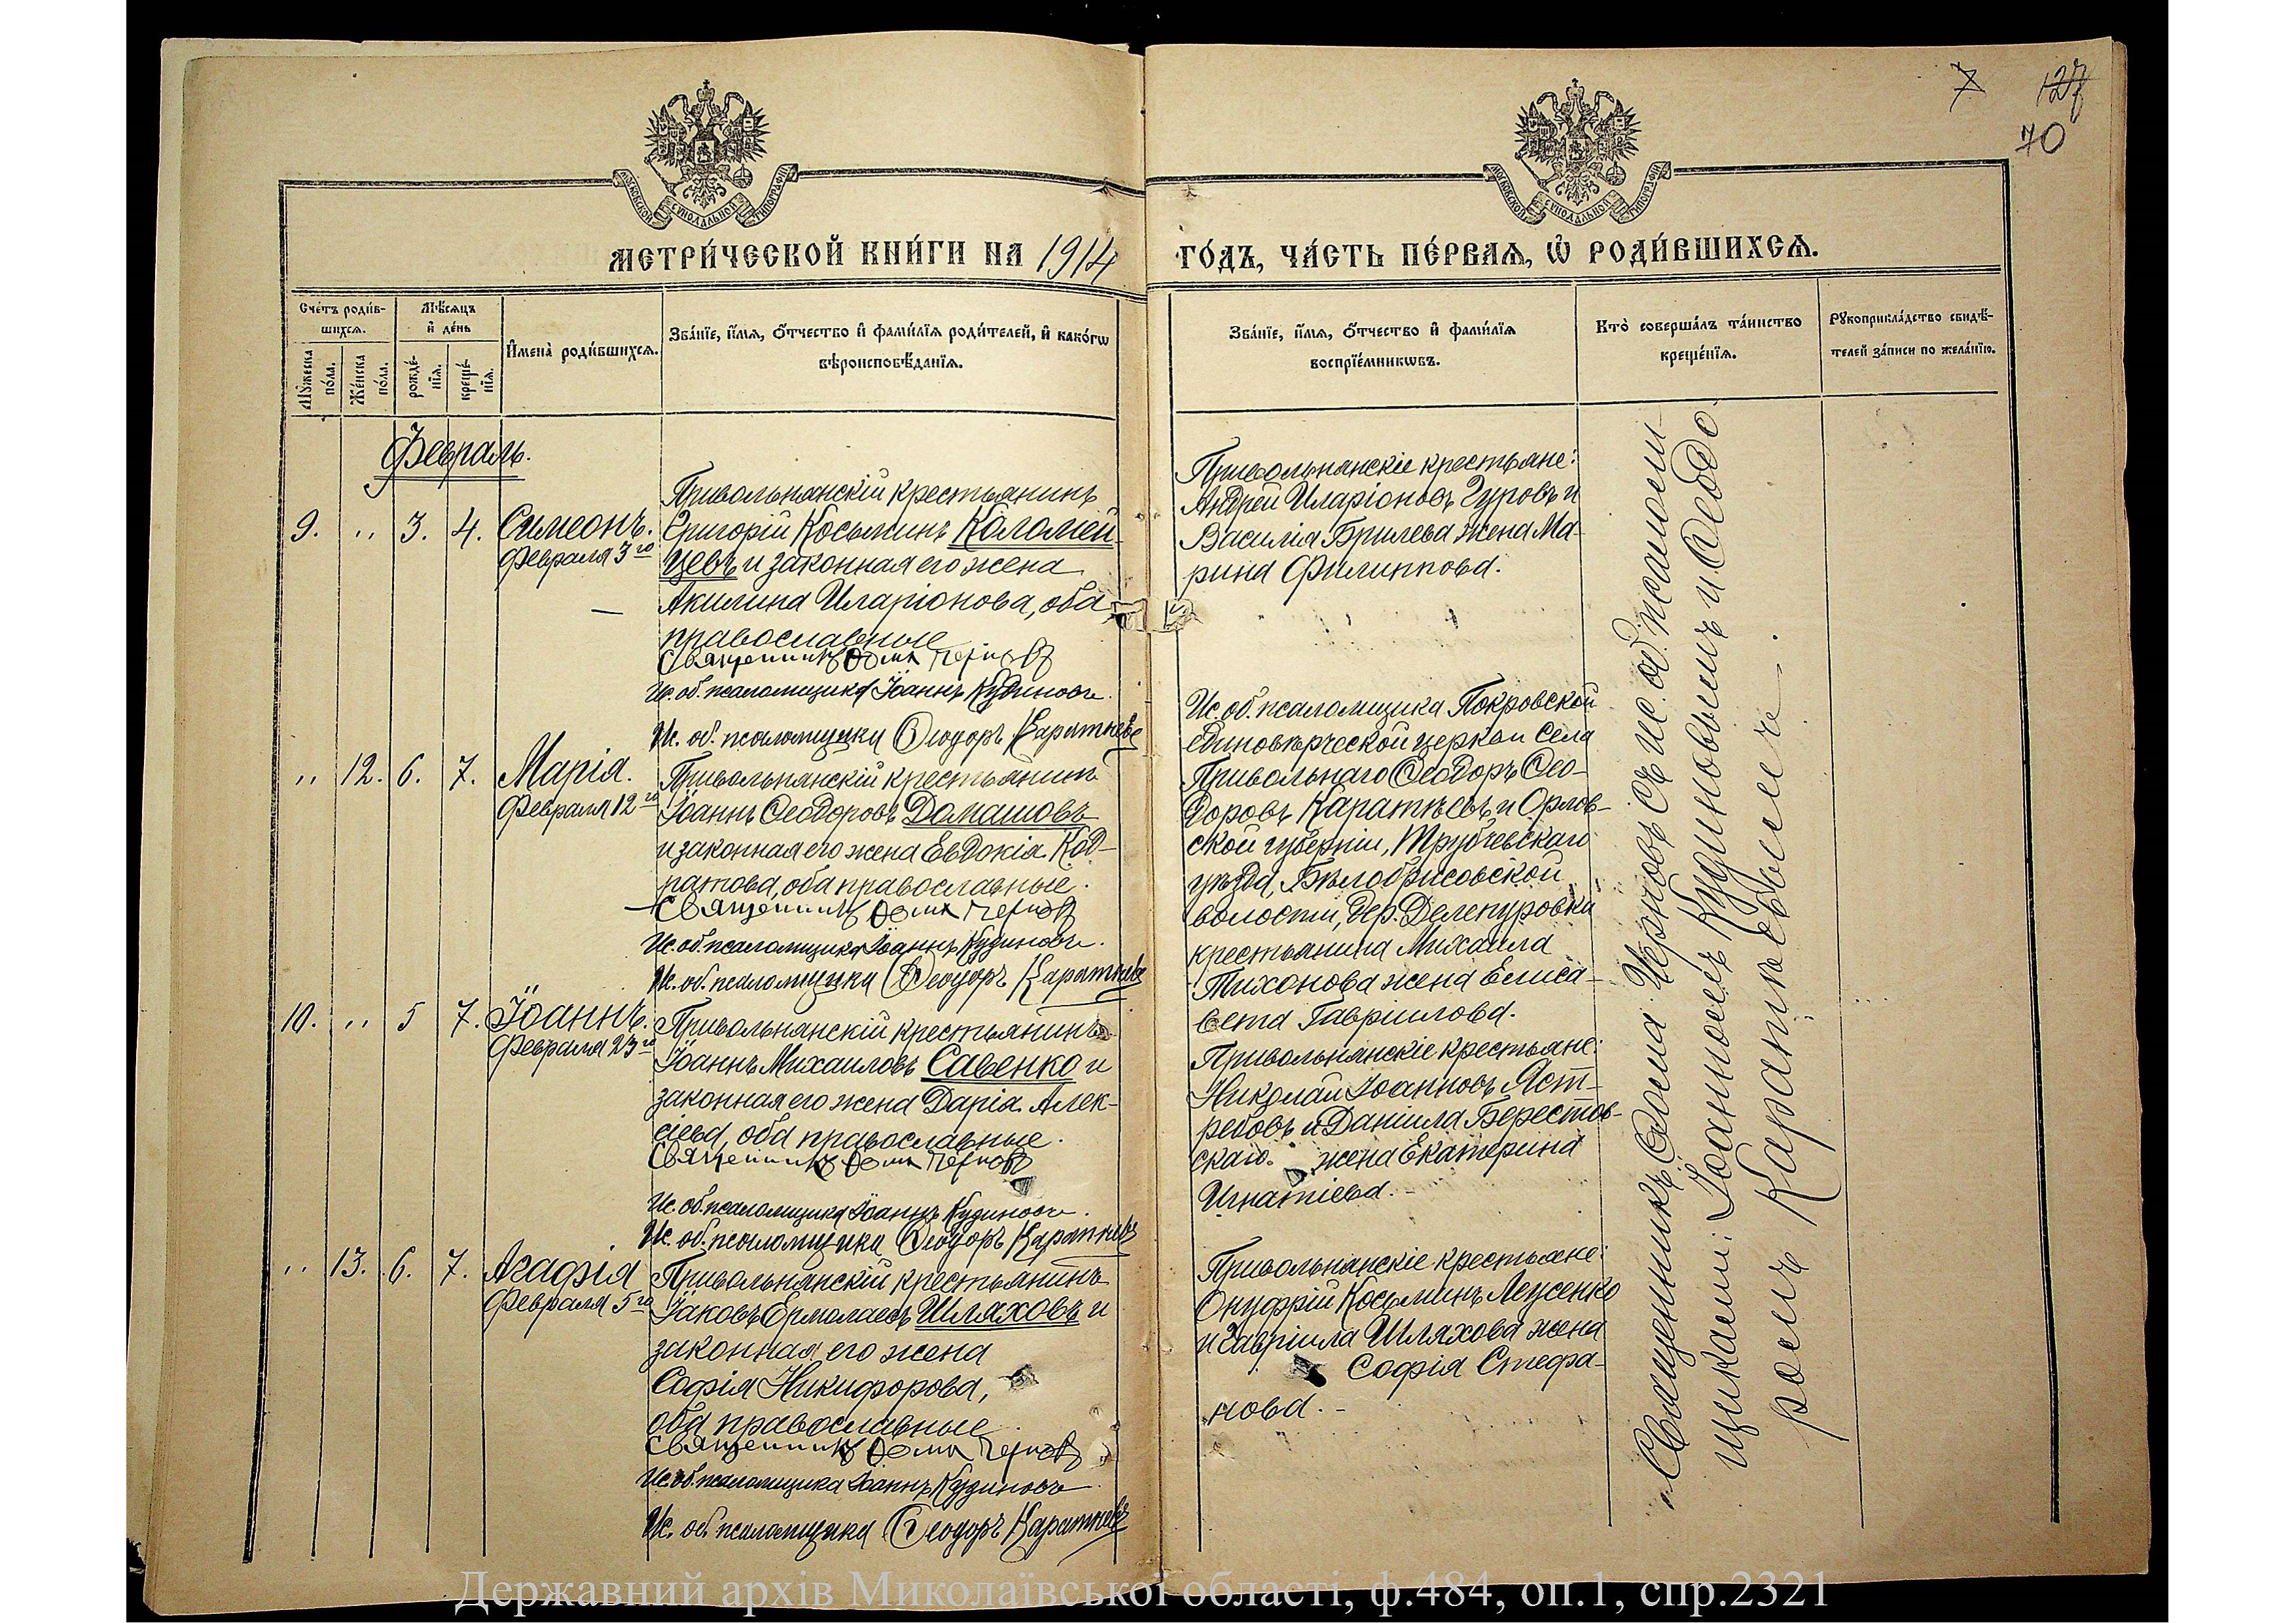 7 127
70
МОСКОВСКОЙ СѴНОДАЛЬНОЙ ТИПОГРАФІИ
МОСКОВСКОЙ СѴНОДАЛЬНОЙ ТИПОГРАФІИ
МЕТРИ́ЧЕСКОЙ КНИ́ГИ НА 1914
ГО́ДЪ, ЧА́СТЬ ПЕ́РВАѦ, Ѿ РОДИ́ВШИХСѦ.
Сче́тъ роди́в-
шихсѧ.
Мꙋ́жеска по́ла.
Же́нска по́ла.
Мѣ́сѧцъ
и҆ де́нь
рожде́-
нїѧ.
креще́-
нїѧ.
И҆мена̀ роди́вшихсѧ.
Зва́нїе, и҆́мѧ, ѻ҆́тчество и҆ фами́лїѧ роди́телей, и҆ како́гѡ
вѣроисповѣ́данїѧ.
Зва́нїе, и҆́мѧ, ѻ҆́тчество и҆ фами́лїѧ
воспрїе́мникѡвъ.
Кто̀ соверша́лъ та́инство
креще́нїѧ.
Рꙋкоприкла́дство свидѣ́-
телей за́писи по жела́нїю.
Февраль.
9. ,, 3. 4. Симеонъ.
Февраля 3го
Привольнянскій крестьянинъ
Григорій Косьминъ Коломей-
цевъ и законная его жена
Акилина Иларіонова, оба
православные
Священникъ Ѳома Черновъ
Ис. об. псаломщика Іоаннъ Кудиновъ.
Ис. об. псаломщика Ѳеодоръ Каратѣевъ
Привольнянскіе крестьяне:
Андрей Иларіоновъ Гуровъ и
Василія Брилева жена Ма-
рина Филиппова.
,, 12. 6. 7. Марія.
Февраля 12го
Привольнянскій крестьянинъ
Іоаннъ Ѳеодоровъ Домашовъ
и законная его жена Евдокія Код-
ратова, оба православные.
Священникъ Ѳома Черновъ
Ис. об. псаломщика Іоаннъ Кудиновъ.
Ис. об. псаломщика Ѳеодоръ Каратѣевъ
Ис. об. псаломщика Покровской
единовѣрческой церкви села
Привольнаго Ѳеодоръ Ѳео-
доровъ Каратѣевъ и Орлов-
ской губерніи, Трубчевскаго
уѣзда,
волости, дер.
крестьянина Михаила
Тихонова жена Елиса-
вета Гавріилова.
10. ,, 5 7. Іоаннъ.
Февраля 23го
Привольнянскій крестьянинъ
Іоаннъ Михаиловъ Савенко и
законная его жена Дарія Алек-
сіева, оба православные.
Священникъ Ѳома Черновъ
Ис. об. псаломщика Іоаннъ Кудиновъ.
Ис. об. псаломщика Ѳеодоръ Каратѣевъ
Привольнянскіе крестьяне:
Николай Іоанновъ Яст-
ребовъ и Даніила Берестов-
скаго. жена Екатерина
Игнатіева.
,, 13. 6. 7. Агафія
Февраля 5го
Привольнянскій крестьянинъ
Іаковъ Ермолаевъ Шляховъ и
законная его жена
Софія Никифорова,
оба православные
Священникъ Ѳома Черновъ
Ис. об. псаломщика Іоаннъ Кудиновъ
Ис. об. псаломщика Ѳеодоръ Каратѣевъ
Привольнянскіе крестьяне:
Онуфрій Косьминъ
и Гавріила Шляхова жена
Софія Стефа-
нова.
Священникъ Ѳома Черновъ съ ис. об. псаломщ-
щиками: Іоанномъ Кудиновымъ и Ѳеодо-
ромъ Каратѣевымъ.
Державний архів Миколаївської області, ф.484, оп.1, спр.2321